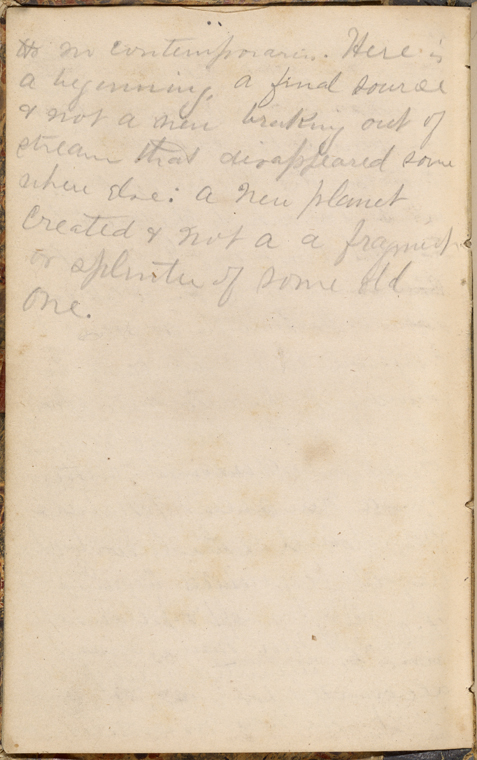 no contemporaries. Here is
a beginning, a final source
& not a new breaking out of
stream that disappeared some
where else: a new planet
Created & not a a fragment
or splinter of some old
one.